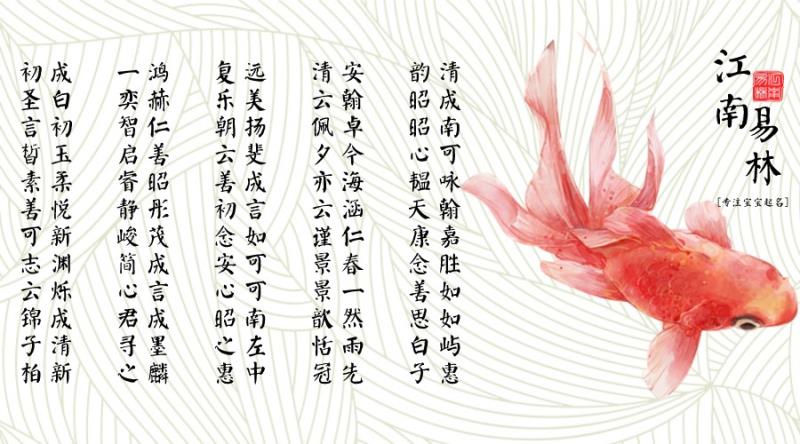 江南
易林
[专注宝宝起名]
清成南可咏翰嘉胜如如屿惠
韵昭昭心韫天康念善思白子
安翰卓今海涵仁春一然雨先
清云佩夕亦云谨景景歆恬冠
远美扬斐成言如可可南左中
复乐朝云善初念安心昭之惠
鸿赫仁善昭彤茂成言成墨麟
一奕智启睿静峻简心君寻之
成白初玉柔悦新渊烁成清新
初圣言皙素善可志云锦子柏